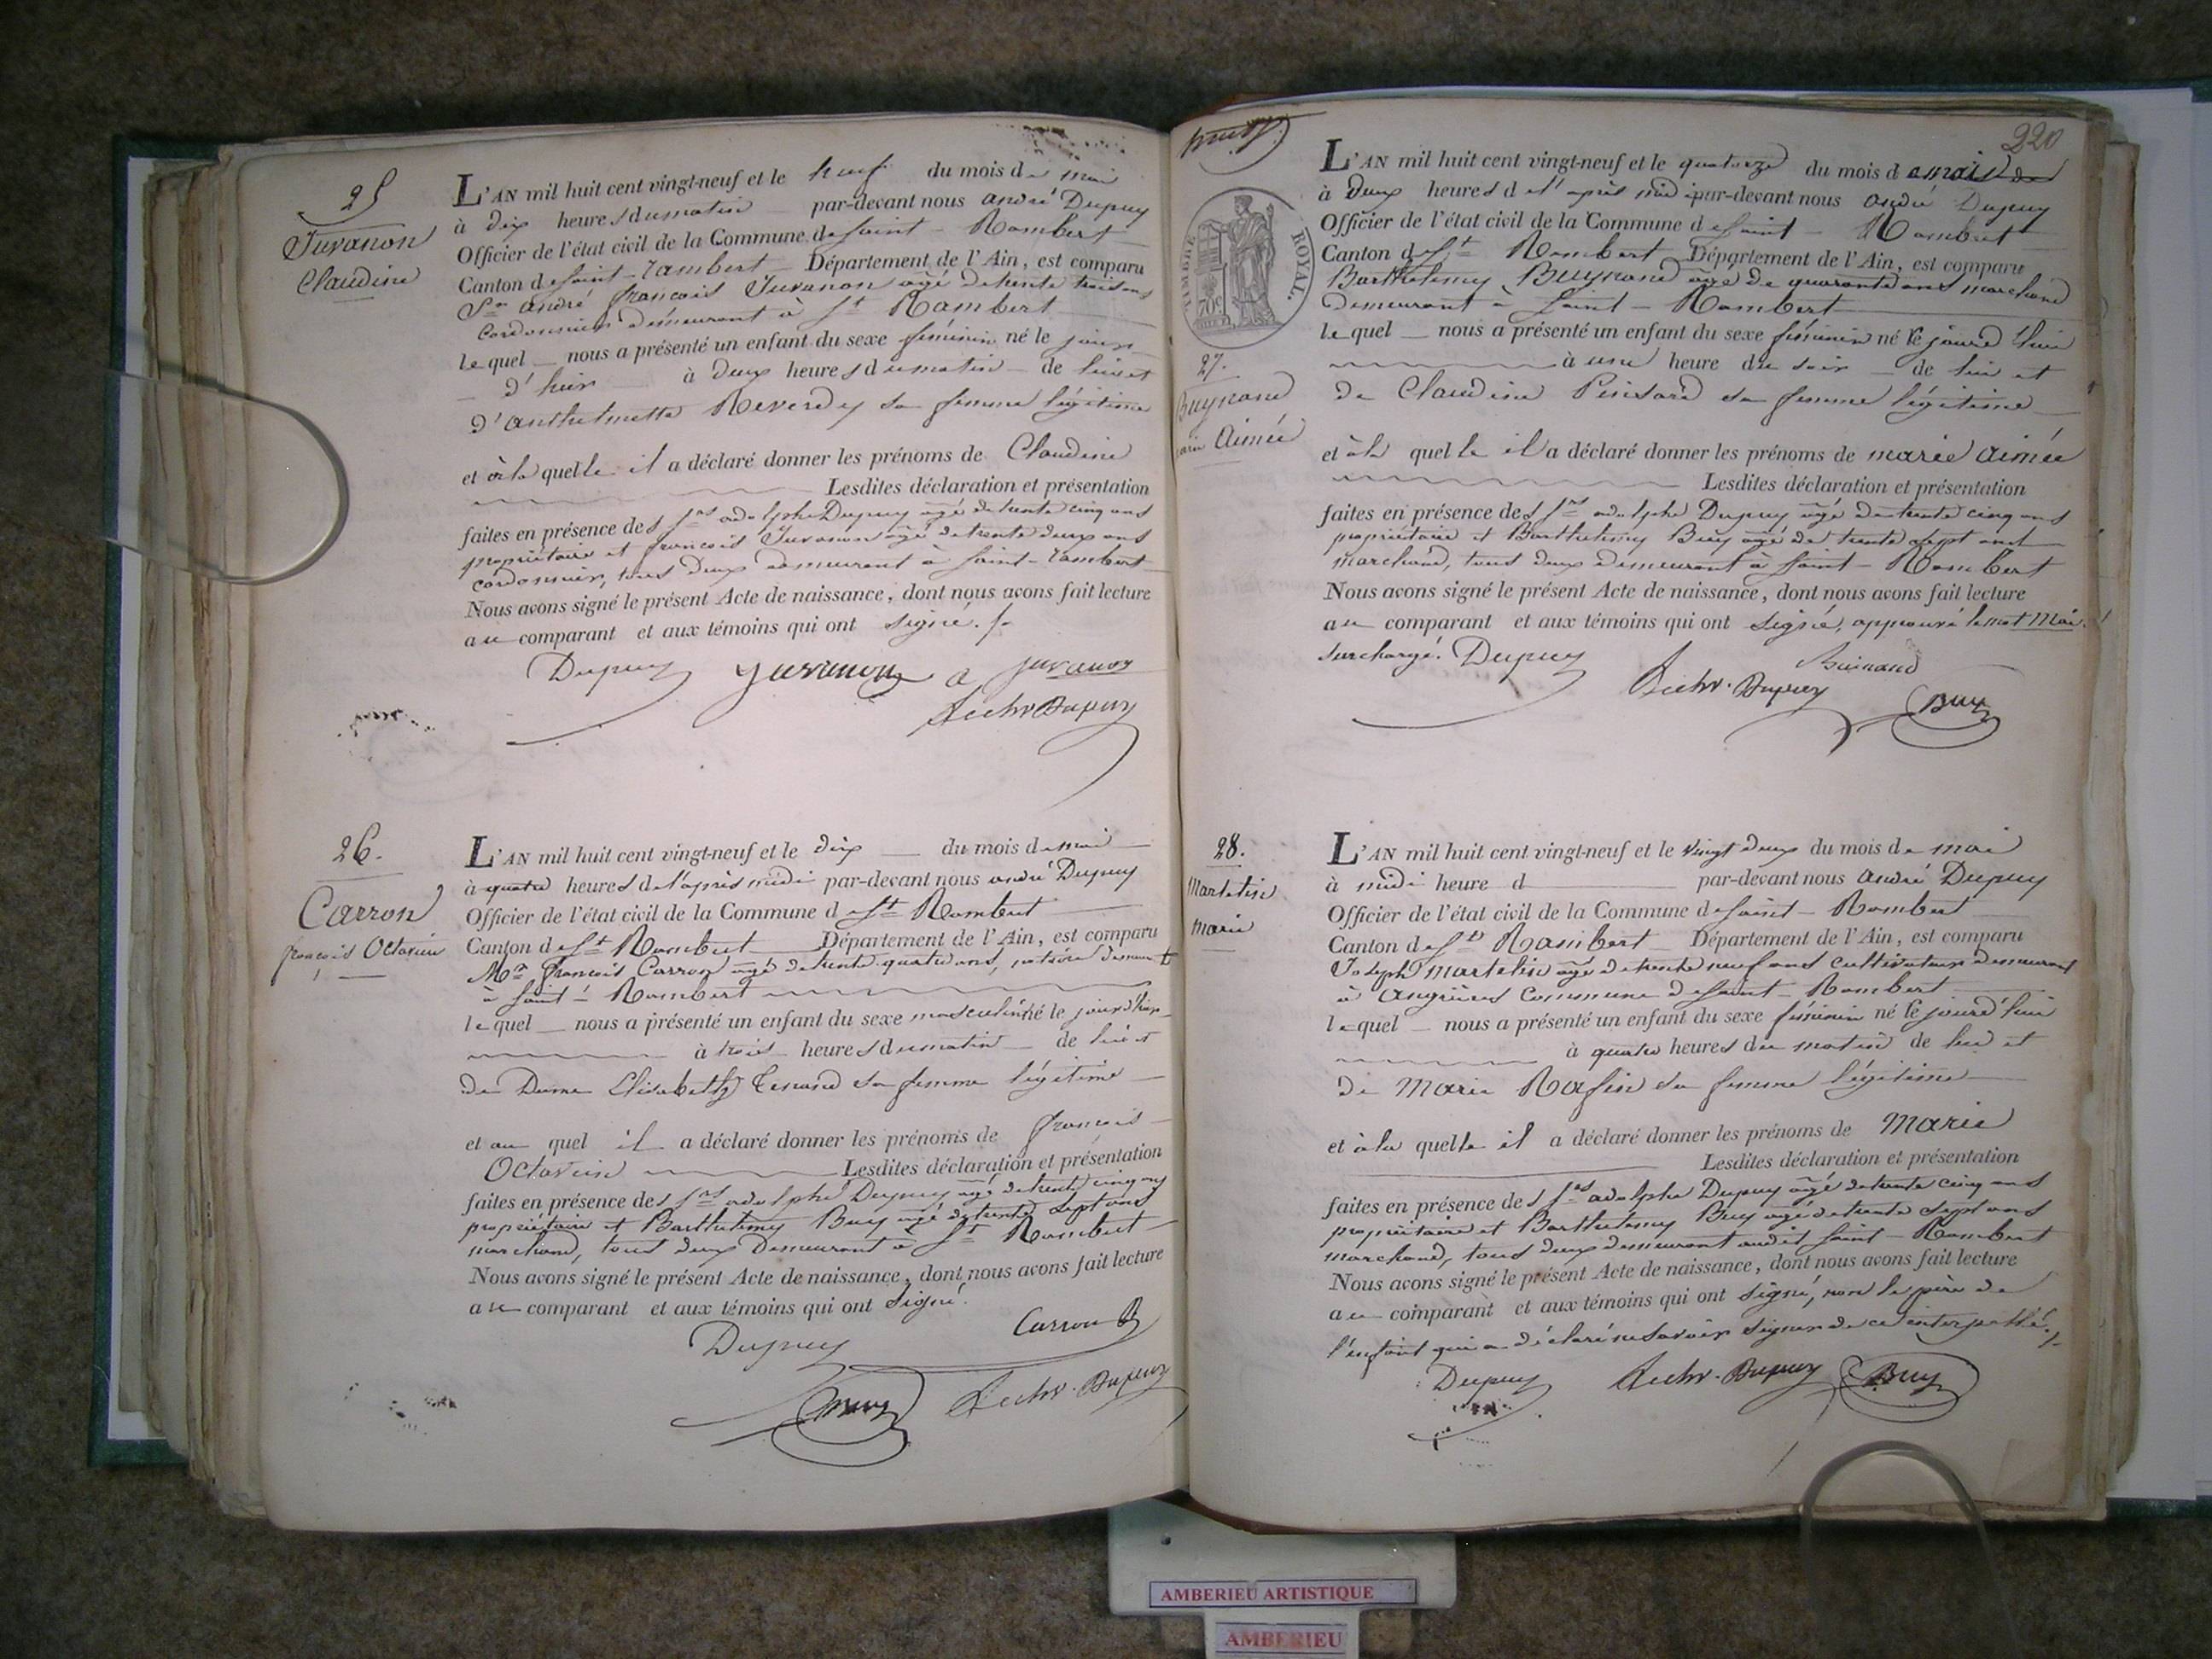 25
Juvanon
Claudine
L'AN mil huit cent vingt-neuf et le neuf du mois de mai
à dix heures du matin par-devant nous andré Dupuy
Officier de l'état civil de la Commune de Saint-Rambert
Canton de Saint-rambert Département de l'Ain, est comparu
Sr andré françois Juvanon âgé de trente trois ans
cordonnier demeurant à St Rambert
lequel nous a présenté un enfant du sexe féminin né le jour
d'hier à deux heures du matin de lui et
d'anthelmette Reverdy sa femme légitime
et à la quelle il a déclaré donner les prénoms de Claudine
Lesdites déclaration et présentation
faites en présence des Srs adolphe Dupuy âgé de trente cinq ans
propriétaire et françois Juvanon âgé de trente deux ans
cordonnier, tous deux demeurant à Saint-rambert
Nous avons signé le présent Acte de naissance, dont nous avons fait lecture
au comparant et aux témoins qui ont signé.
Dupuy Juvanon a juvanon
Dupuy
26.
Carron
françois Octavien
L'AN mil huit cent vingt-neuf et le dix du mois de mai
à quatre heures de l'après midi par-devant nous andré Dupuy
Officier de l'état civil de la Commune de St Rambert
Canton de St Rambert Département de l'Ain, est comparu
Mr françois Carron âgé de trente quatre ans, notaire demeurt
à Saint-Rambert
lequel nous a présenté un enfant du sexe masculin né le jour d'hier
à trois heures du matin de lui et
de Dame Elisabeth Tenand sa femme légitime
et au quel il a déclaré donner les prénoms de françois
Octavien Lesdites déclaration et présentation
faites en présence des Srs adolphe Dupuy âgé de trente cinq ans
propriétaire et Barthelemy Buy âgé de trente sept ans
marchand, tous deux demeurant à St Rambert
Nous avons signé le présent Acte de naissance, dont nous avons fait lecture
au comparant et aux témoins qui ont signé.
Dupuy Carron
Buy Dupuy
220
TIMBRE ROYAL.
70c
27.
Buynand
marie Aimée
L'AN mil huit cent vingt-neuf et le quatorze du mois de mai
à deux heures de l'après midi par-devant nous andré Dupuy
Officier de l'état civil de la Commune de Saint-Rambert
Canton de St Rambert Département de l'Ain, est comparu
Barthelemy Buynand âgé de quarante ans marchand
demeurant à Saint-Rambert
lequel nous a présenté un enfant du sexe féminin né le jourd'hui
à une heure du soir de lui et
de Claudine Pinsard sa femme légitime
et à la quelle il a déclaré donner les prénoms de marie aimée
Lesdites déclaration et présentation
faites en présence des Srs adolphe Dupuy âgé de trente cinq ans
propriétaire et Barthelemy Buy âgé de trente sept ans
marchand, tous deux demeurant à Saint-Rambert
Nous avons signé le présent Acte de naissance, dont nous avons fait lecture
au comparant et aux témoins qui ont signé, approuvé le mot Mai
surchargé. Dupuy Buinand
Dupuy Buy
28.
Martelin
marie
L'AN mil huit cent vingt-neuf et le vingt deux du mois de mai
à midi heure d par-devant nous andré Dupuy
Officier de l'état civil de la Commune de Saint-Rambert
Canton de St Rambert Département de l'Ain, est comparu
Joseph martelin âgé de trente neuf ans cultivateur demeurant
à angrières Commune de Saint-Rambert
lequel nous a présenté un enfant du sexe féminin né le jourd'hui
à quatre heures du matin de lui et
de Marie Rafin sa femme légitime
et à la quelle il a déclaré donner les prénoms de Marie
Lesdites déclaration et présentation
faites en présence des Srs adolphe Dupuy âgé de trente cinq ans
propriétaire et Barthelemy Buy âgé de trente sept ans
marchand, tous deux demeurant audit Saint-Rambert
Nous avons signé le présent Acte de naissance, dont nous avons fait lecture
au comparant et aux témoins qui ont signé, non le père de
l'enfant qui a déclaré ne savoir signer de ce interpellé.
Dupuy Dupuy Buy
AMBERIEU ARTISTIQUE
AMBERIEU